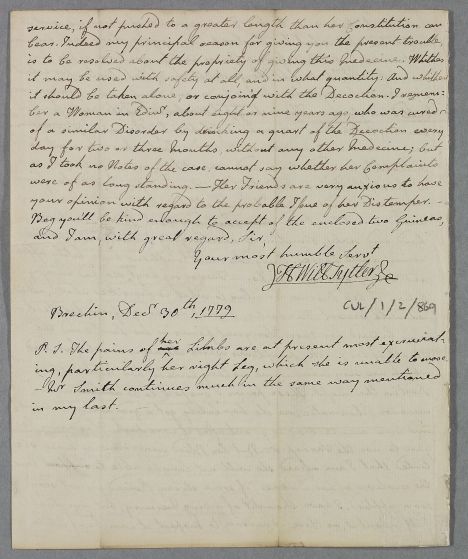 service, if not pushed to a greater length than her Constitution can
bear. Indeed my principal reason for giving you the present trouble,
is to be resolved about the propriety of giving this Medecine. Whether
it may be used with safety at all, and in what quantity; And whether
it should be taken alone, or conjoin'd with the Decoction. I remem:
ber a Woman in Edinr, about eight or nine years ago, who was cured
of a similar Disorder by drinking a quart of the Decoction every
day for two or three Months, without any other Medecine; but
as I took no Notes of the case, cannot say whether her Complaints
were of as long standing. — Her Friends are very anxious to have
your opinion with regard to the probable Issue of her Distemper. —
Beg you'll be kind enough to accept of the enclosed two Guineas,
and I am, with great regard, Sir,
Your most humble Servt
Willm Tytler
Brechin, Decr 30th, 1779
CUL/1/2/869
P.S. The pains of her Limbs are at present most excruciat:
ing, particularly her right Leg, which she is unable to move
— Mr Smith continues much in the same way mentioned
in my last. —